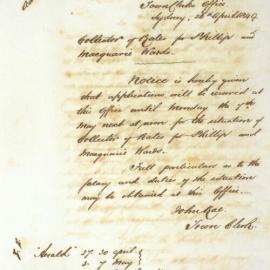 Town Clerks Office
Sydney, 26th April 1849
Collector of Rates for Phillip and
Macquarie Wards.
Notice is hereby given
that applications will be received at
this Office until Monday the 7th
May next at noon for the situation of
Collector of Rates for Phillip and
Macquarie Wards.
Full particulars as to the
salary and duties of the situation
may be obtained at this Office.
John Rae
Town Clerk
"Herald" 27. 30 April
7 May